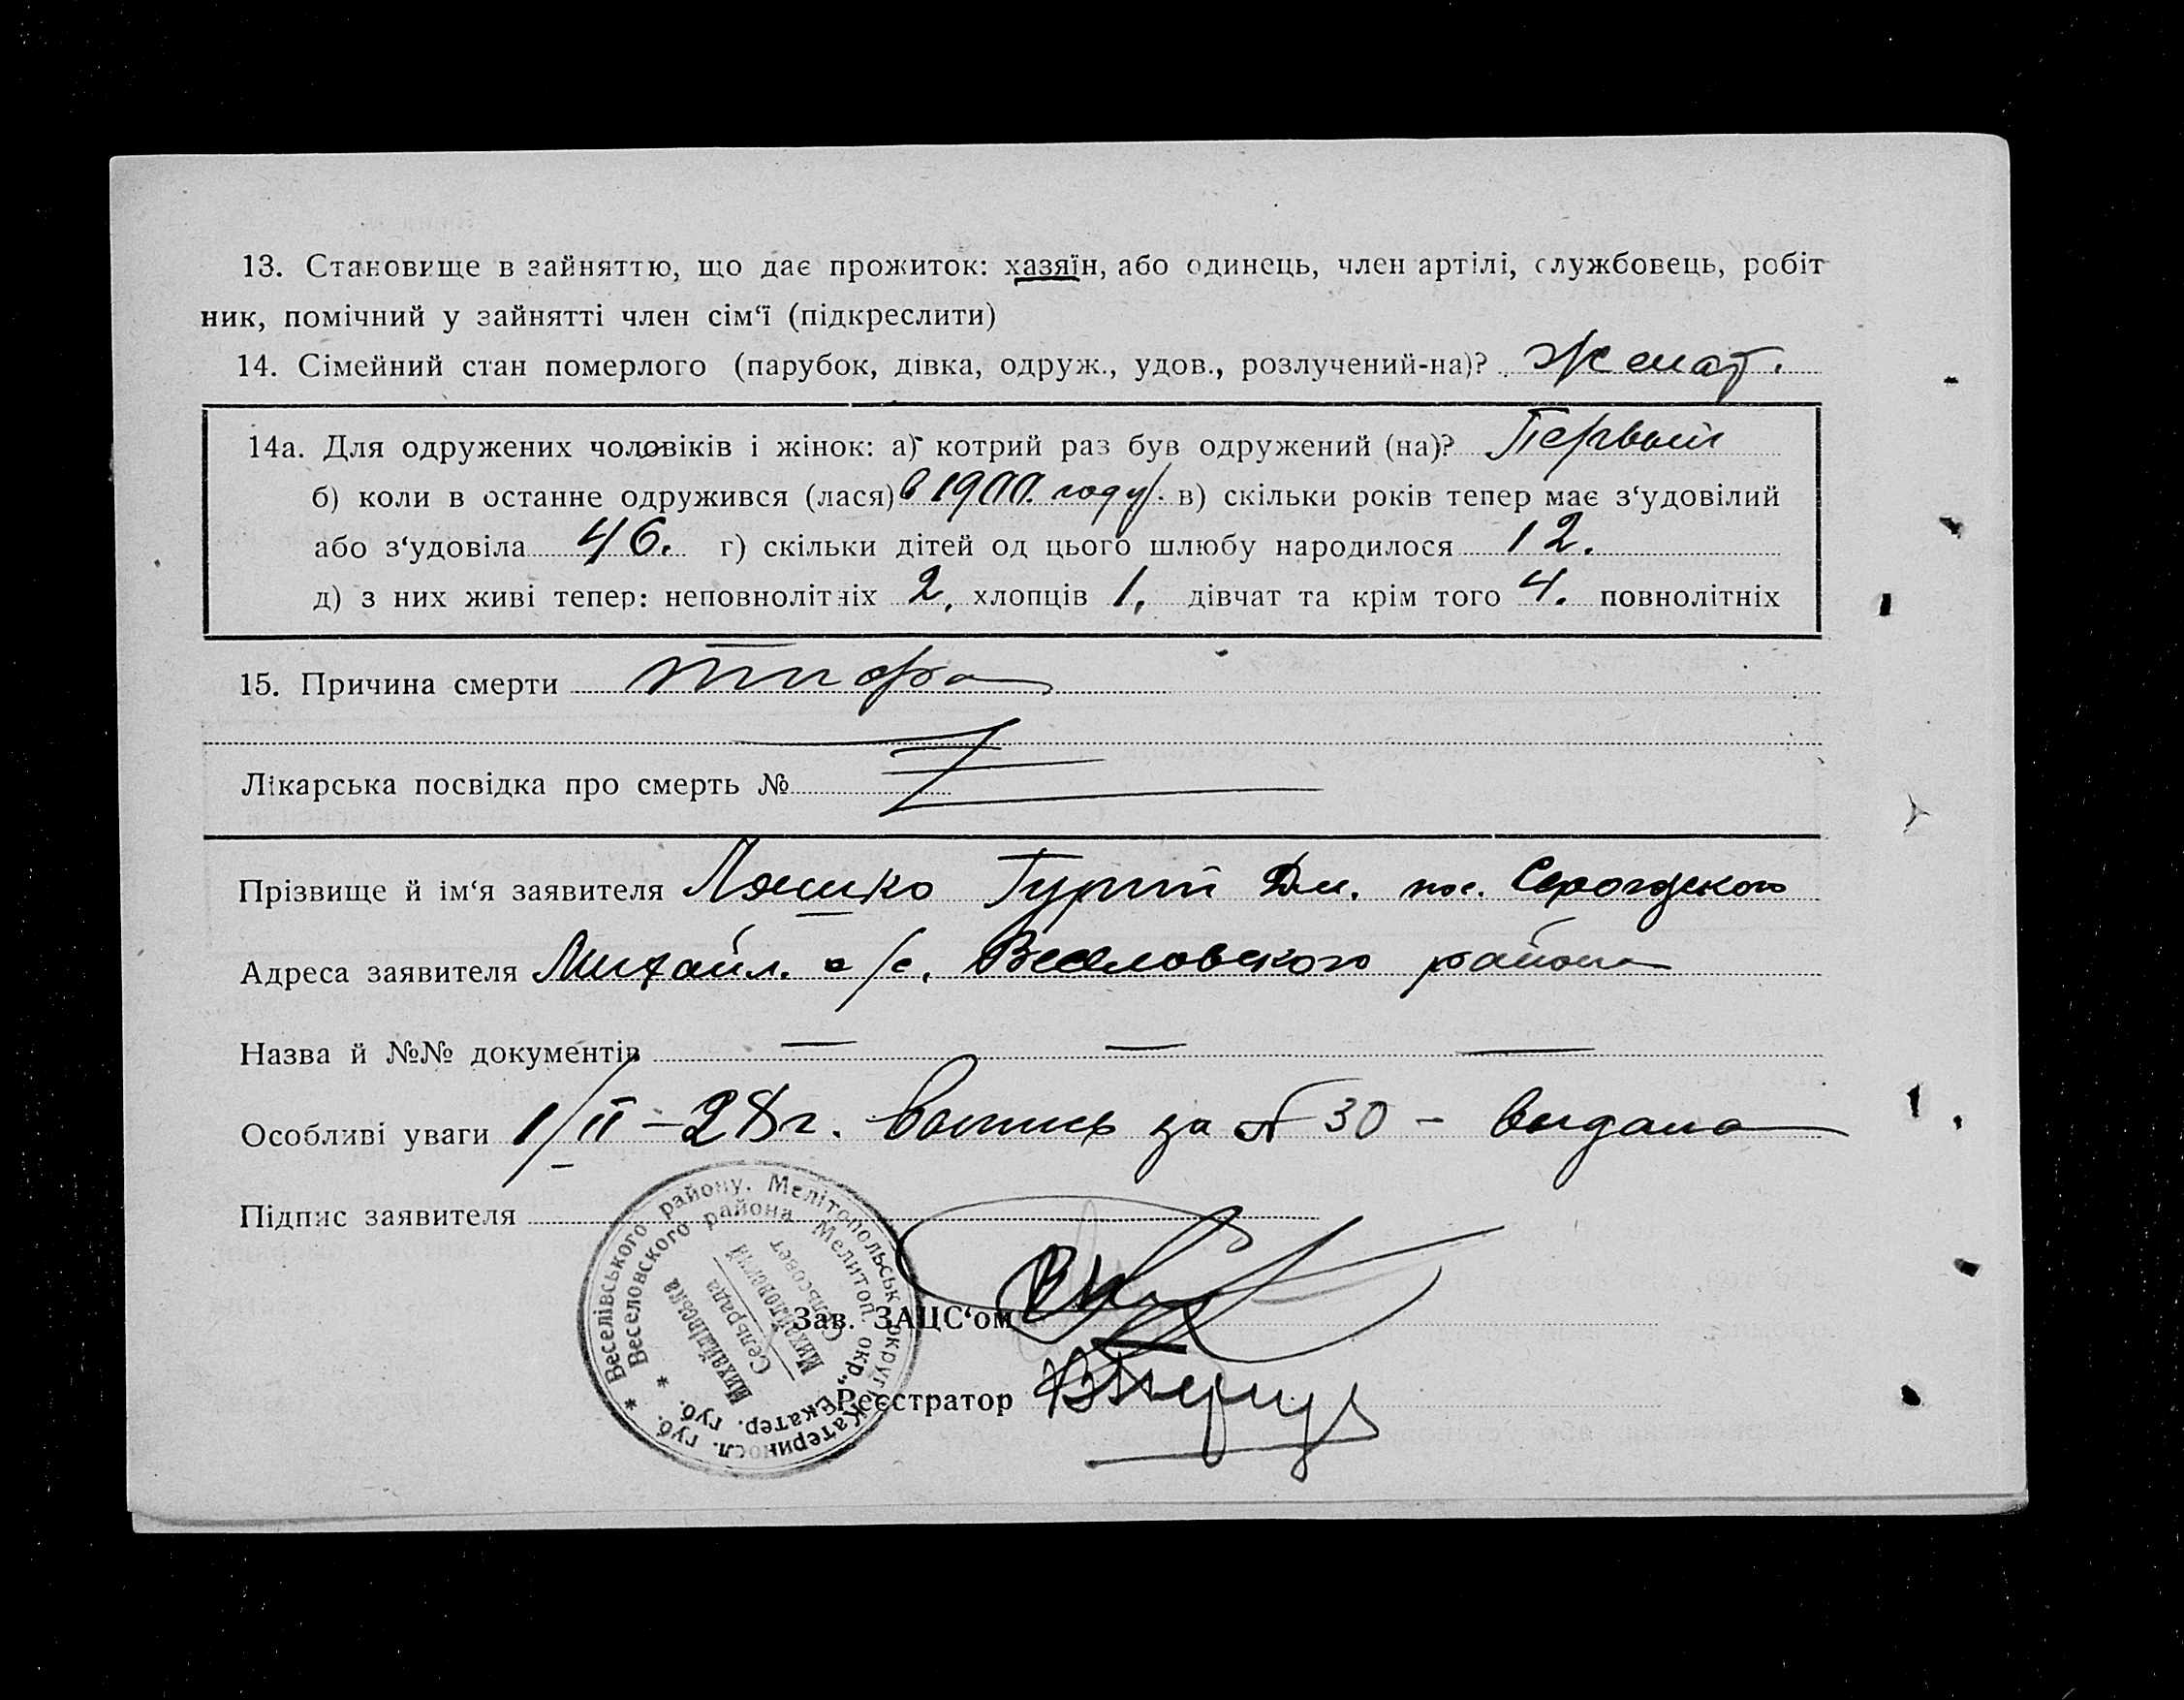 13. Становище в зайняттю, що дає прожиток: хазяїн, або одинець, член артілі, службовець, робіт
ник, помічний у зайнятті член сім‘ї (підкреслити)
14. Сімейний стан померлого (парубок, дівка, одруж., удов., розлучений-на)? женат.
14а. Для одружених чоловіків і жінок: а) котрий раз був одружений (на)? Первый
б) коли в останне одружився (лася) в 1900. году. в) скільки років тепер має з‘удовілий
або з‘удовіла 46. г) скільки дітей од цього шлюбу народилося 12.
д) з них живі тепер: неповнолітніх 2, хлопців 1, дівчат та крім того 4. повнолітніх
15. Причина смерти тифа
Лікарська посвідка про смерть №
Прізвище й ім‘я заявителя Ляшко Гурий Дм. пос.
Адреса заявителя Михайл. с/с. Веселовского района
Назва й №№ документів — — —
Особливі уваги 1/II – 28 г. выпись за № 30 – выдана
Підпис заявителя
Зав. ЗАЦС‘ом
Реєстратор
* Веселівського району. Мелітопольськ. округи Катериносл. губ.
* Веселовского района Мелитоп. окр., Екатер. губ.
Михайлівська
Сельрада
Михайловский
Сельсовет